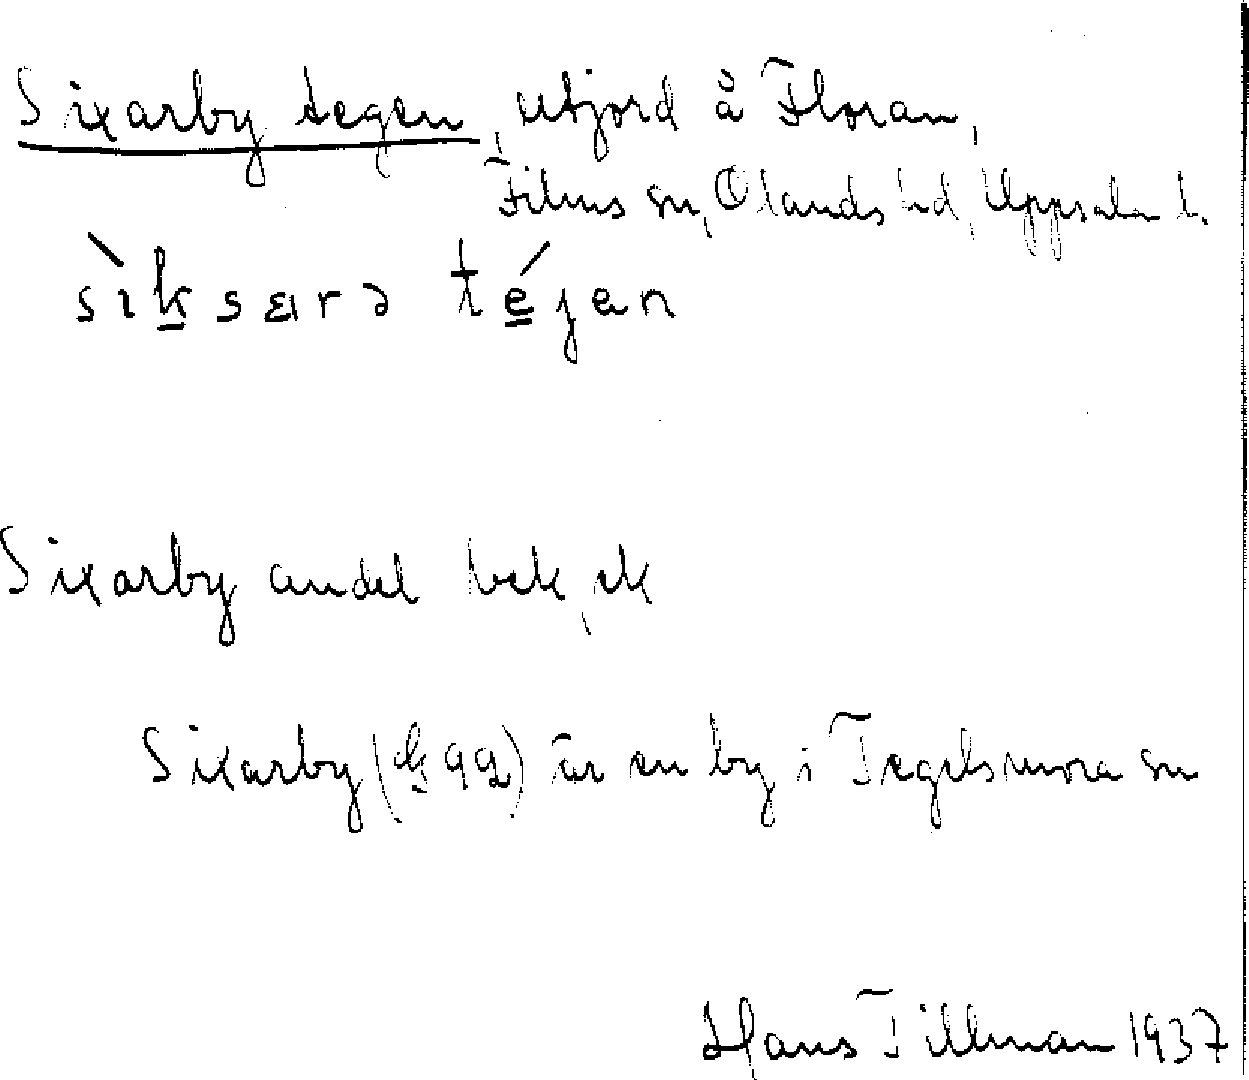 Sixarby tegen, utjord å Floran,
Films sn, Olands hd, Uppsala l.
sìksarə téjen
Sixarby andel bek, ek
Sixarby (99) är en by i Tegelsmora sn
Hans Tillman 1937